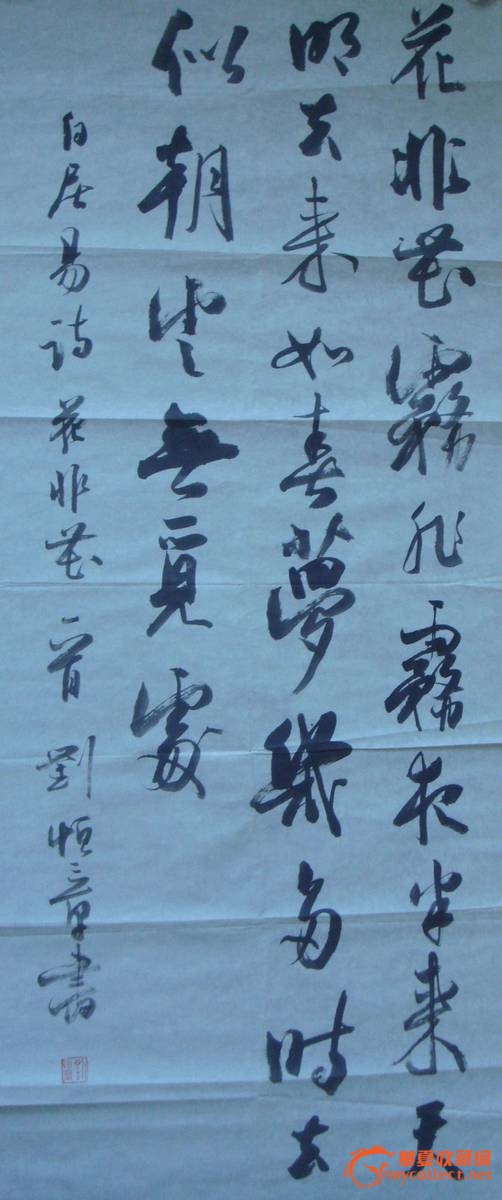 花非花霧非霧夜半来天
明去来如春夢幾多時去
似朝雲無覓處
白居易詩花非花一首劉恒章書
華夏收藏網
mycollect.com